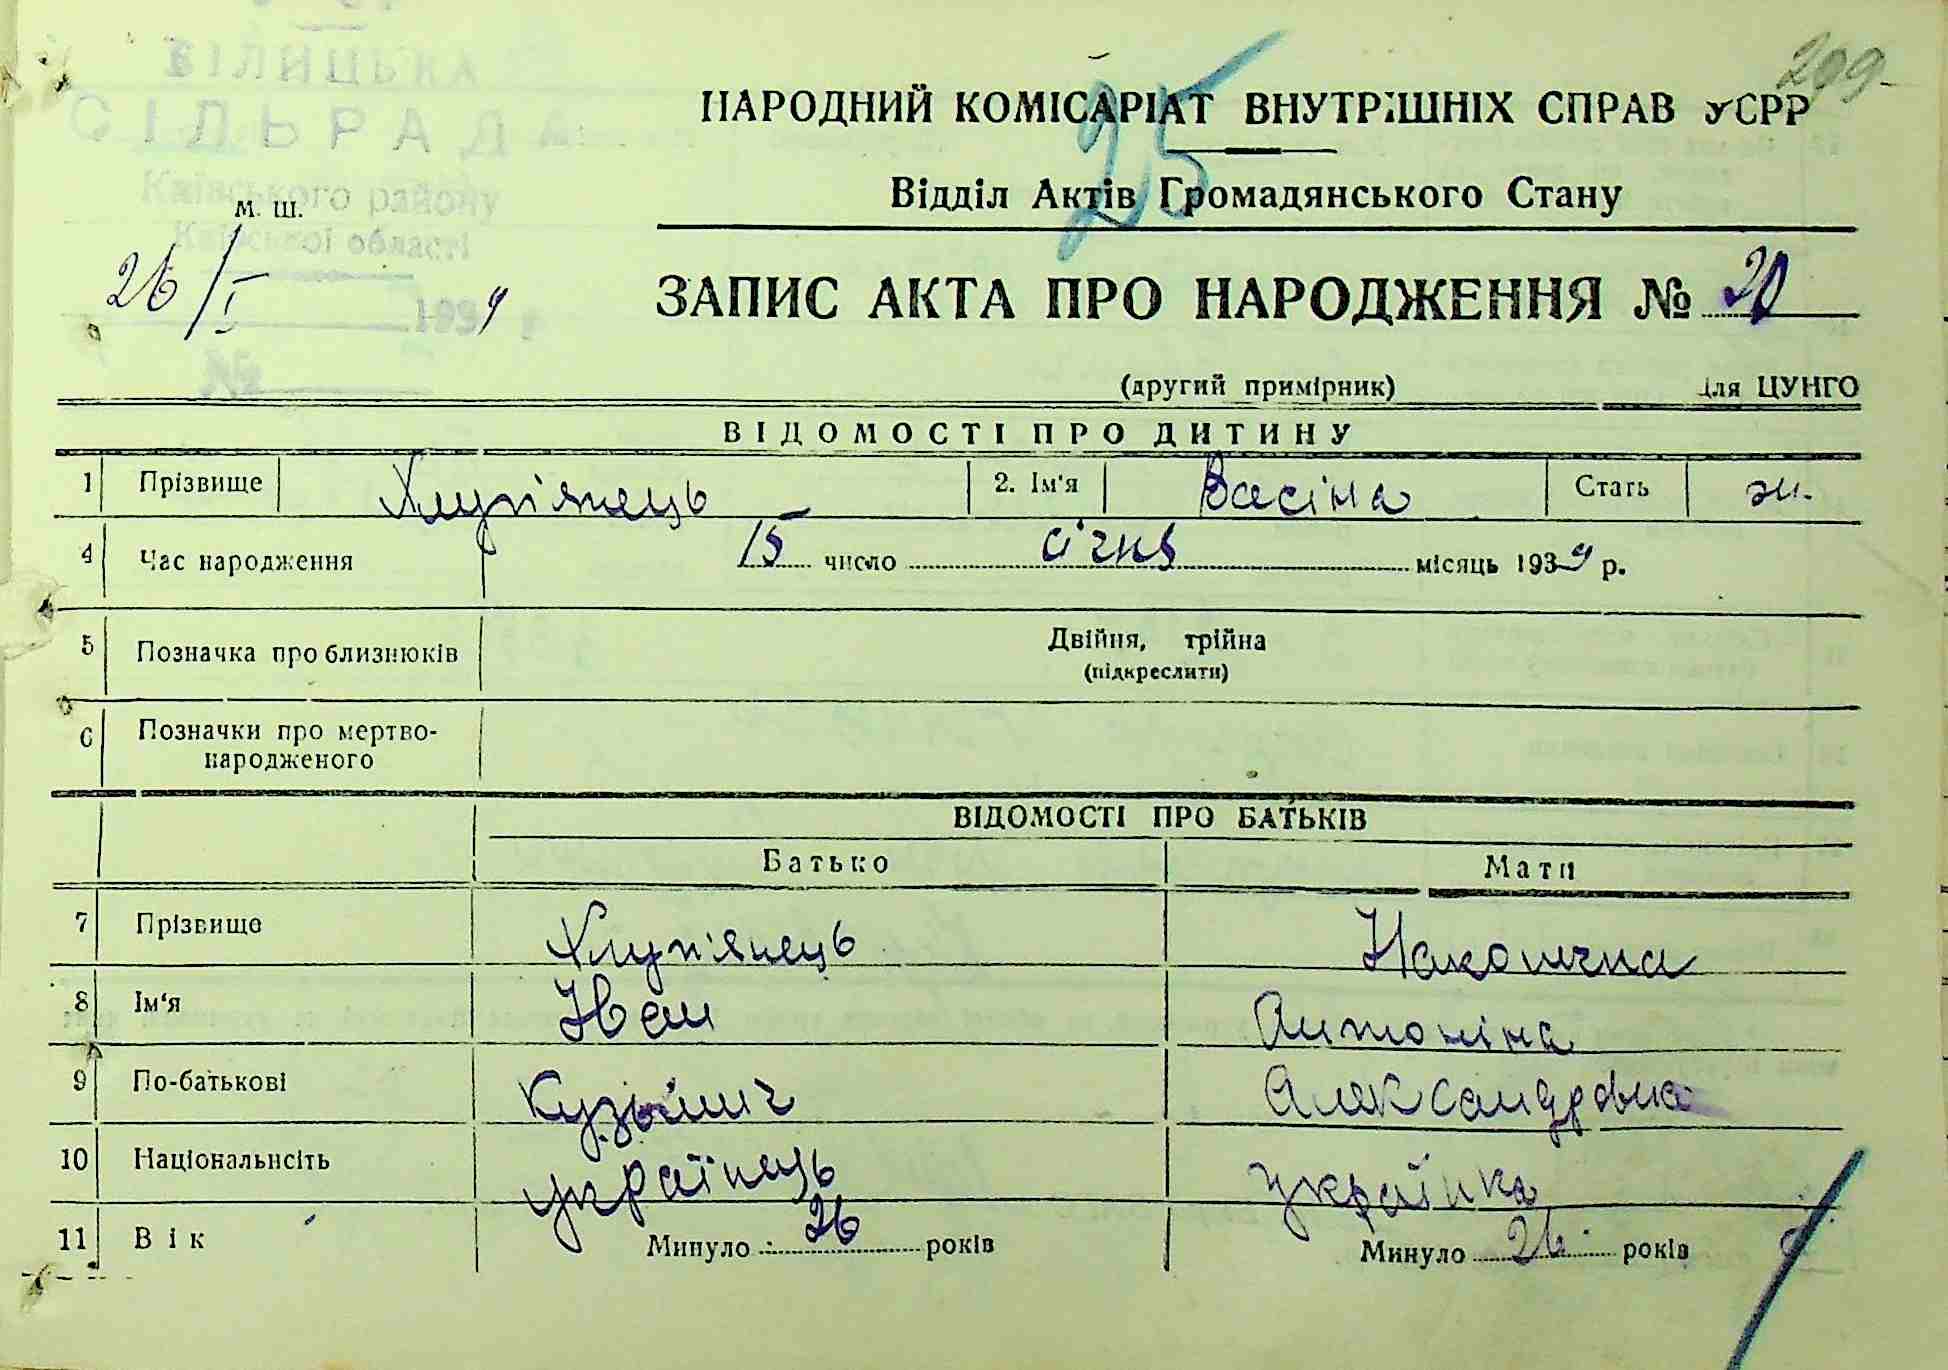 299
БІЛИЦЬКА
СІЛЬРАДА
Київського району
Київської області
М. Ш.
26/I 1939 р
№
25
НАРОДНИЙ КОМІСАРІАТ ВНУТРІШНІХ СПРАВ УСРР
Відділ Актів Громадянського Стану
ЗАПИС АКТА ПРО НАРОДЖЕННЯ № 20
(другий примірник) Для ЦУНГО
ВІДОМОСТІ ПРО ДИТИНУ
1 Прізвище Хлуп'янець 2. Ім'я Васіна Стать ж.
4 Час народження 15 число січня місяць 1939 р.
5 Позначка про близнюків Двійня, трійна
(підкреслити)
6 Позначки про мертво-
народженого
ВІДОМОСТІ ПРО БАТЬКІВ
Батько Мати
7 Прізвище Хлуп'янець Наконечна
8 Ім'я Іван Антоніна
9 По-батькові Кузьмич Александровна
10 Національнсіть українець українка
11 Вік Минуло 26 років Минуло 26 років